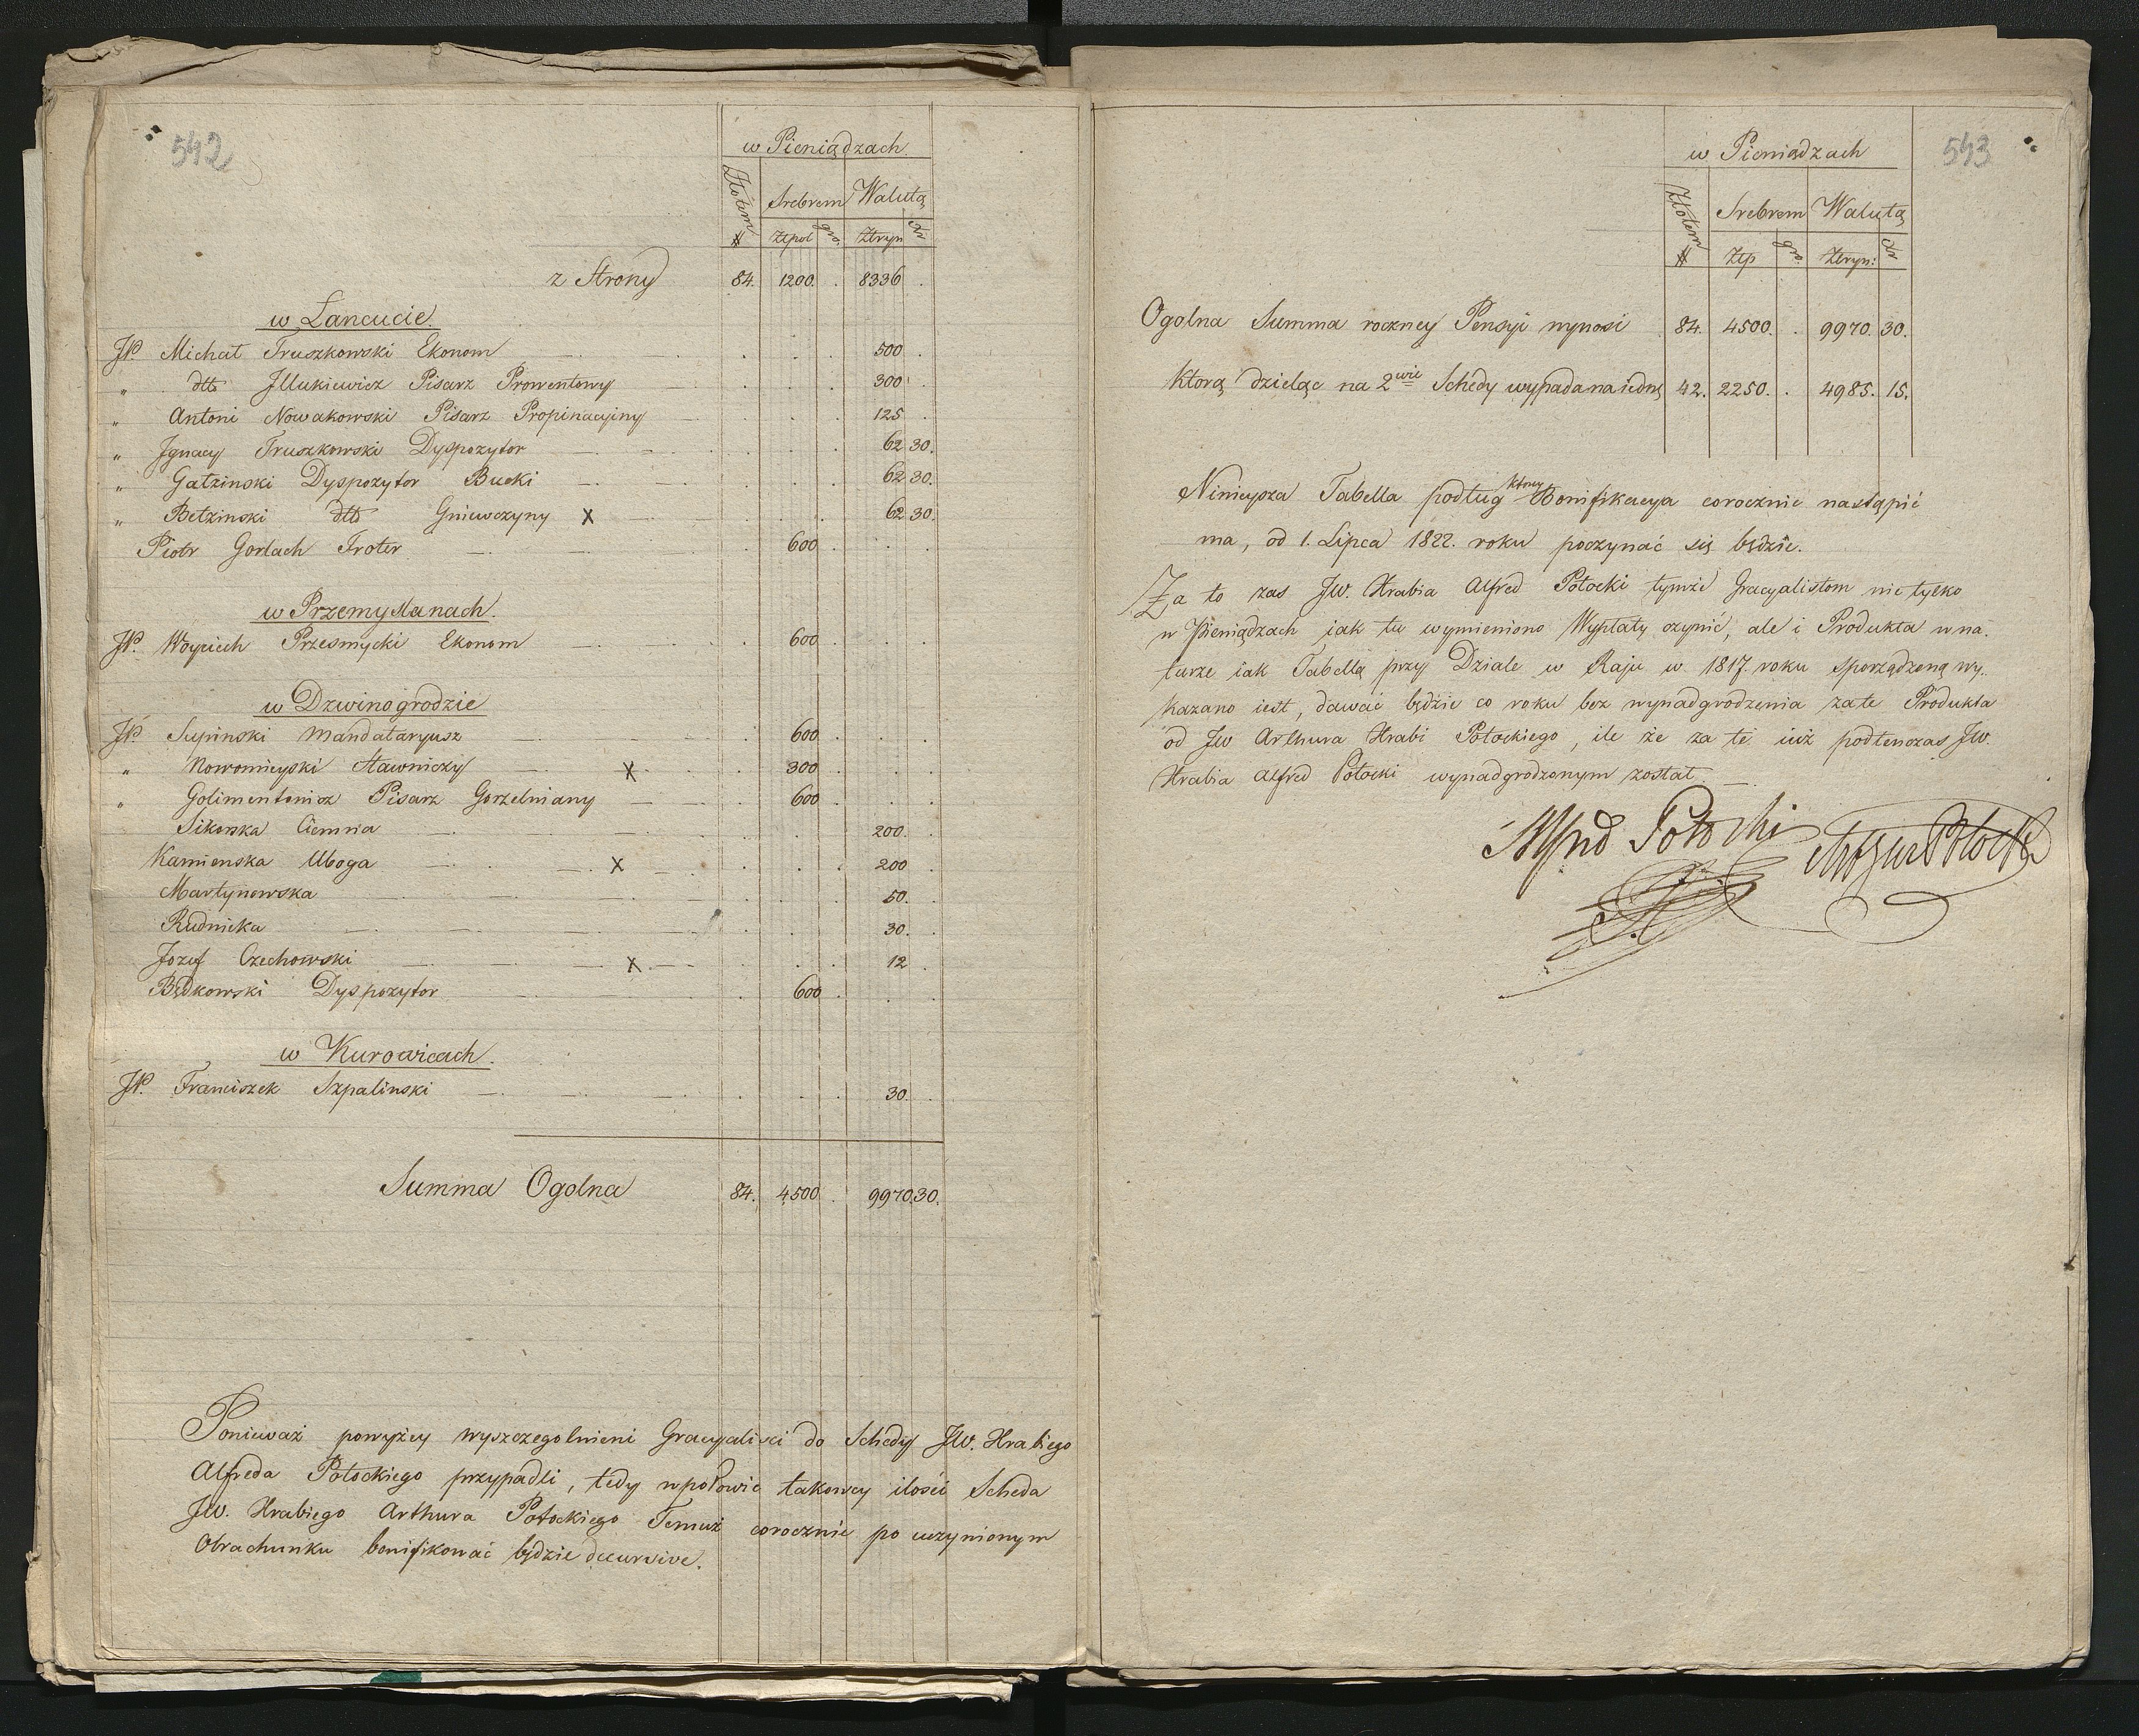 542
w Pieniądzach
Złotem Srebrem Walutą
# Złpol gro. Złryn xr
z Strony 84. 1200. . 8336 .
w Łancucie.
JP. Michał Truszkowski Ekonom 500 .
" dtto Jllukiewicz Pisarz Prowentowy 300 .
" Antoni Nowakowski Pisarz Propinacyiny 125 .
" Jgnacy Truszkowski Dyspozytor 62 30.
" Gałzinski Dyspozytor Bucki 62 30.
" Betzinski dtto Gniewczyny X 62 30.
Piotr Gorlach Froter 600 . . .
w Przemyslanach.
JP. Woyciech Przesmycki Ekonom 600 . . .
w Dzwinogrodzie
JP. Supinski Mandataryusz 600 . . .
" Nowomieyski Stawniczy X 300 . . .
" Golimentowicz Pisarz Gorzelniany 600 . . .
Sikorska Ciemna 200. .
Kamienska Uboga X 200 .
Martynowska 50. .
Rudnicka 30. .
Jozef Czechowski X 12 .
Będkowski Dyspozytor 600 . . .
w Kurowicach.
JP. Franciszek Szpalinski 30. .
Summa Ogolna 84. 4500 . 9970 30.
Ponieważ powyżey wyszczegolnieni Gracyaliści do Schedy JW. Hrabiego
Alfreda Potockiego przypadli, tedy w połowie takowey ilości Scheda
JW. Hrabiego Arthura Potockiego Temuż corocznie po uczynionym
Obrachunku bonifikować będzie decursive.
543
w Pieniądzach
Złotem Srebrem Walutą
# Złp gro. Złryn: xr
Ogolna Summa roczney Pensyi wynosi 84. 4500. . 9970. 30.
Ktorą dzieląc na 2wie Schedy wypada na iedną 42. 2250. . 4985. 15.
Ninieysza Tabella podług ktorey Bonifikacya corocznie nastąpić
ma, od 1. Lipca 1822. roku poczynać się będzie.
Za to zas JW. Hrabia Alfred Potocki tymże Gracyalistom nie tylko
w Pieniądzach iak tu wymieniono Wypłaty czynić, ale i Produkta w na.
turze iak Tabellą przy Dziale w Raju w 1817. roku sporządzoną wy..
kazano iest, dawać będzie co roku bez wynadgrodzenia za te Produkta
od JW Arthura Hrabi Potockiego, ile że za te iuż podtenczas JW.
Hrabia Alfred Potocki wynadgrodzonym został.
Alfred Potocki Artur Potocki